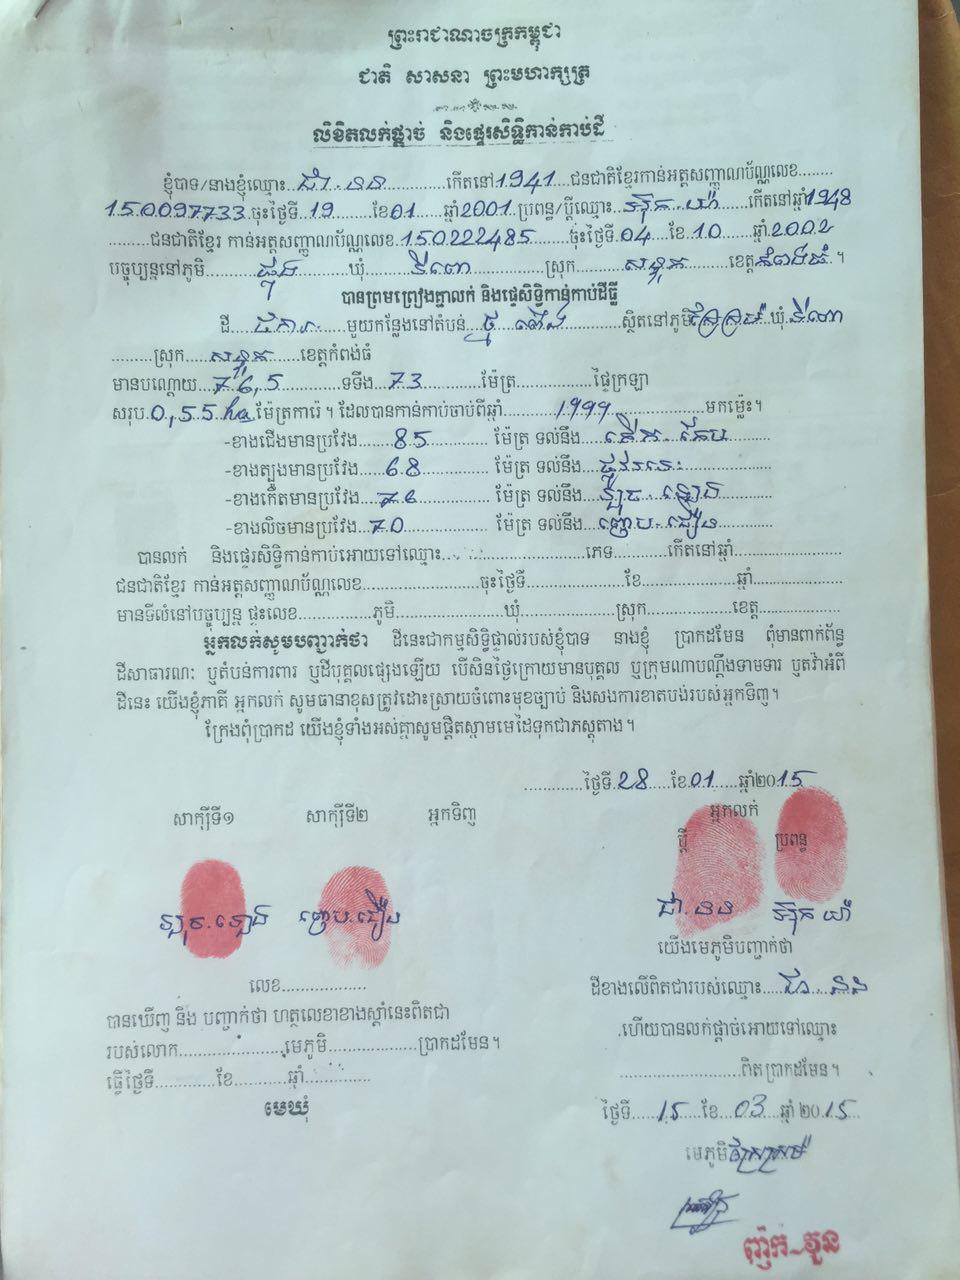 ព្រះរាជាណាចក្រកម្ពុជា
ជាតិ សាសនា ព្រះមហាក្សត្រ
លិខិតលក់ផ្តាច់ និងផ្ទេរសិទ្ធិកាន់កាប់ដី
ខ្ញុំបាទ/នាងខ្ញុំឈ្មោះ..ជា. នន...............កើតនៅ1941...ជនជាតិខ្មែរកាន់អត្តសញ្ញាណប័ណ្ណលេខ........
150097733.ចុះថ្ងៃទី.19......ខែ01.....ឆ្នាំ 2001.ប្រពន្ធ/ប្តីឈ្មោះ...អ៊ុក យ៉ា....កើតនៅឆ្នាំ1948
..........ជនជាតិខ្មែរ កាន់អត្តសញ្ញាណប័ណ្ណលេខ.150222485......ចុះថ្ងៃទី.04....ខែ.10......ឆ្នាំ.2002
បច្ចុប្បន្ននៅភូមិ..............ឃុំ....ទីពោ................ស្រុក......សន្ទុក........ខេត្តកំពង់ធំ.។
បានព្រមព្រៀងគ្នាលក់ និងផ្ទេសិទ្ធិកាន់កាប់ដីធ្លី
ដី..............មួយកន្លែងនៅតំបន់..ថ្ម..............ស្ថិតនៅភូមិ..........ឃុំ.ទីពោ
..........ស្រុក....សន្ទុក......ខេត្តកំពង់ធំ
មានបណ្តោយ...76,5............ទទឹង..73..........ម៉ែត្រ..................ផ្ទៃក្រឡា
សរុប.0,55 ha.ម៉ែត្រការ៉េ។ ដែលបានកាន់កាប់ចាប់ពីឆ្នាំ..........1999..............មកម្ល៉េះ។
-ខាងជើងមានប្រវែង......85............ ម៉ែត្រ ទល់នឹង.....................
-ខាងត្បូងមានប្រវែង.....68............. ម៉ែត្រ ទល់នឹង...ផ្លូវរទេះ..................
-ខាងកើតមានប្រវែង...76............. ម៉ែត្រ ទល់នឹង...ឡុច. ឡេង..............
-ខាងលិចមានប្រវែង..70............... ម៉ែត្រ ទល់នឹង...ញ៉េប. ជឿន...........
បានលក់ និងផ្ទេរសិទ្ធិកាន់កាប់អោយទៅឈ្មោះ..........................ភេទ............កើតនៅឆ្នាំ.......................
ជនជាតិខ្មែរ កាន់អត្តសញ្ញាណប័ណ្ណលេខ..........................ចុះថ្ងៃទី......................ខែ......................ឆ្នាំ....................
មានទីលំនៅបច្ចុប្បន្ន ផ្ទះលេខ................ភូមិ........................ឃុំ....................ស្រុក...................ខេត្ត..................
អ្នកលក់សូមបញ្ជាក់ថា ដីនេះជាកម្មសិទ្ធិផ្ទាល់របស់ខ្ញុំបាទ នាងខ្ញុំ ប្រាកដមែន ពុំមានពាក់ព័ន្ធ
ដីសាធារណៈ ឬតំបន់ការពារ ឬដីបុគ្គលផ្សេងឡើយ បើសិនថ្ងៃក្រោយមានបុគ្គល ឬក្រុមណាបណ្តឹងទាមទារ ឬតវ៉ាអំពី
ដីនេះ យើងខ្ញុំភាគី អ្នកលក់ សូមធានាខុសត្រូវដោះស្រាយចំពោះមុខច្បាប់ និងសងការខាតបង់របស់អ្នកទិញ។
ក្រែងពុំប្រាកដ យើងខ្ញុំទាំងអស់គ្នាសូមផ្តិតស្នាមមេដៃទុកជាភស្តុតាង។
.............ថ្ងៃទី.28.....ខែ.01.....ឆ្នាំ២០15
សាក្សីទី១ សាក្សីទី២ អ្នកទិញ អ្នកលក់
ប្តី ប្រពន្ធ
ឡុច. ឡេង ញ៉េប. ជឿន ជា. នន អ៊ុក យ៉ា
យើងមេភូមិបញ្ជាក់ថា
លេខ..................
ដីខាងលើពិតជារបស់ឈ្មោះ.....ជា.. នន
បានឃើញ និង បញ្ជាក់ថា ហត្ថលេខាខាងស្តាំនេះពិតជា
.ហើយបានលក់ផ្តាច់អោយទៅឈ្មោះ
របស់លោក......................មេភូមិ...................ប្រាកដមែន។
..........................ពិតប្រាកដមែន។
ធ្វើថ្ងៃទី.............ខែ............ឆ្នាំ..............
មេឃុំ
ថ្ងៃទី.....15.....ខែ...03....ឆ្នាំ ២០.15
មេភូមិ
ញ៉ក់-វួន